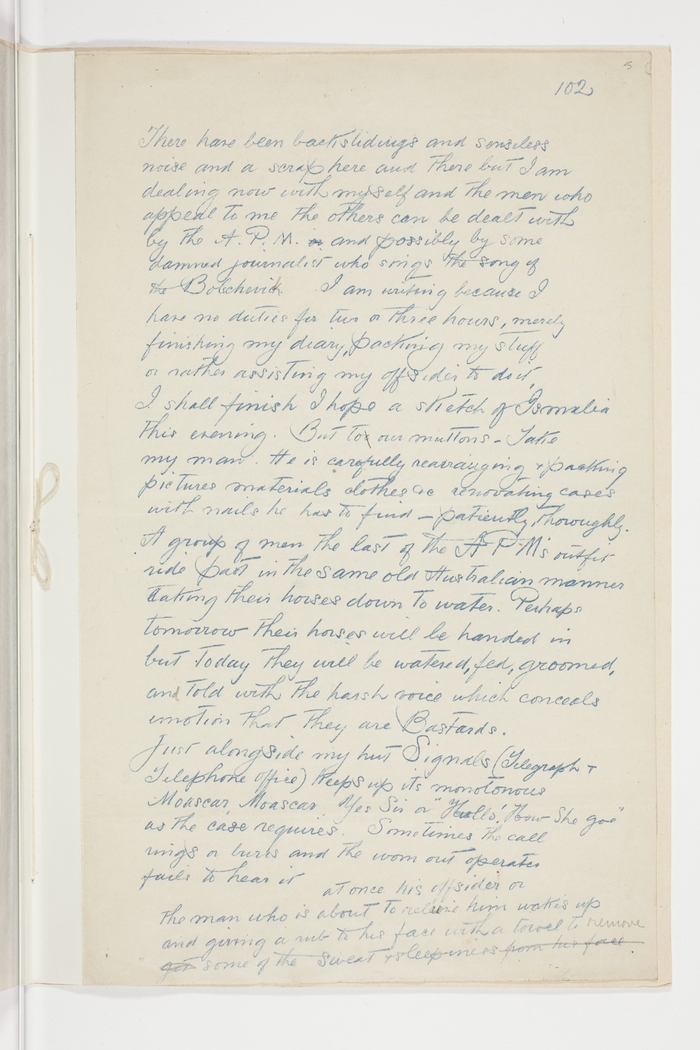 102
There have been backslidings and senseless
noise and a scrap here and there but I am
dealing now with myself and the men who
appeal to me the others can be dealt with
by the A. P. M. or and possibly by some
damned journalist who songs the song of
the Bolchevick I am writing because I
have no duties for two or three hours, merely
finishing my diary, packing my stuff
or rather assisting my offsider to do it,
I shall finish I hope a sketch of Ismalia
this evening. But to our muttons - Take
my man. He is carefully rearranging & packing
pictures materials clothes &c renovating cases
with nails he has to find - patiently, thoroughly.
A group of men the last of the A P M's outfit
ride past in the same old Australian manner
taking their horses down to water. Perhaps
tomorrow their horses will be handed in
but today they will be watered, fed, groomed,
and told with the harsh voice which conceals
emotion that they are Bastards.
Just alongside my hut Signals (Telegraph &
Telephone office) keeps up its monotonous
Moascar, Moascar. Yes Sir or "Hullo! How she goe"
as the case requires. Sometimes the call
rings or burrs and the worn out operator
fails to hear it at once his offsider or
the man who is about to relieve him wakes up
and giving a rub to his face with a towel to remove
get some of the sweat & sleepiness from his face.